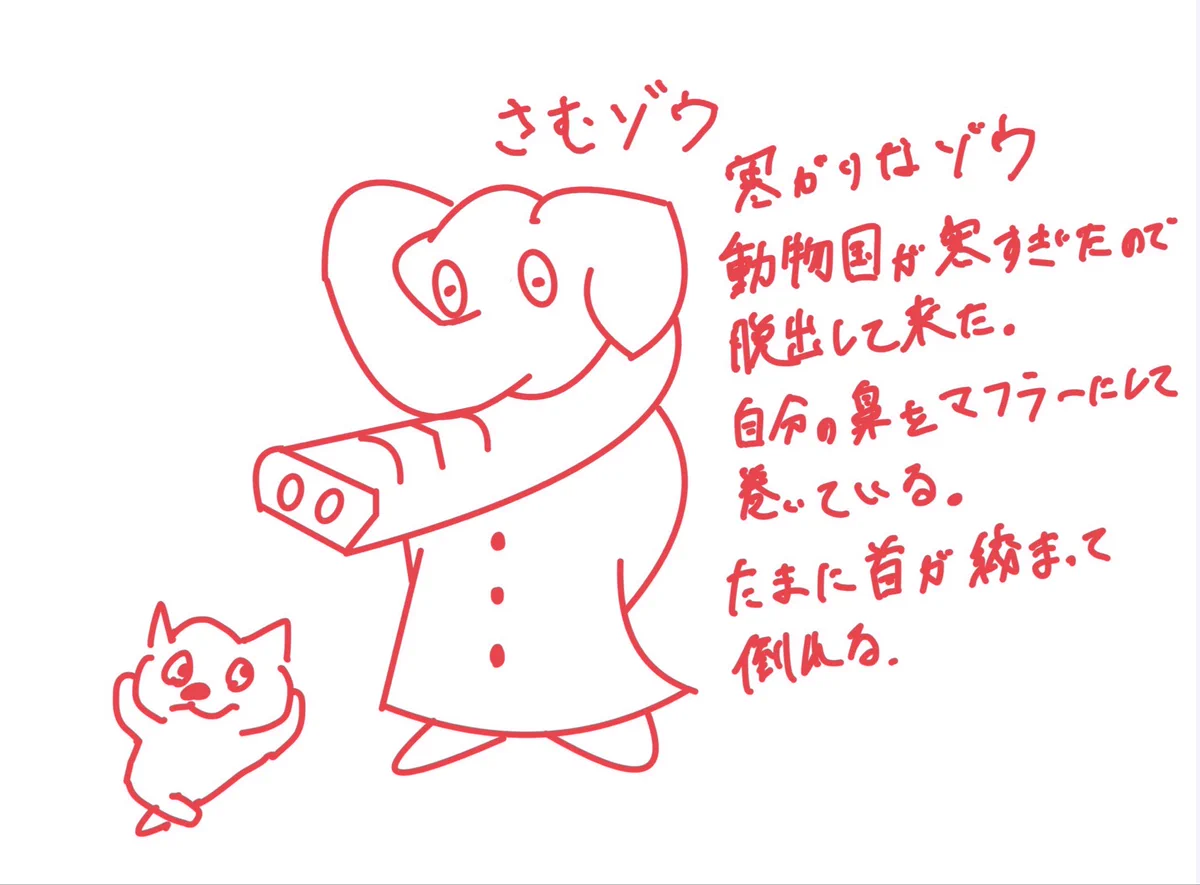 さむゾウ
寒がりなゾウ
動物国が寒すぎたので
脱出して来た。
自分の鼻をマフラーにして
巻いている。
たまに首が絞まって
倒れる.